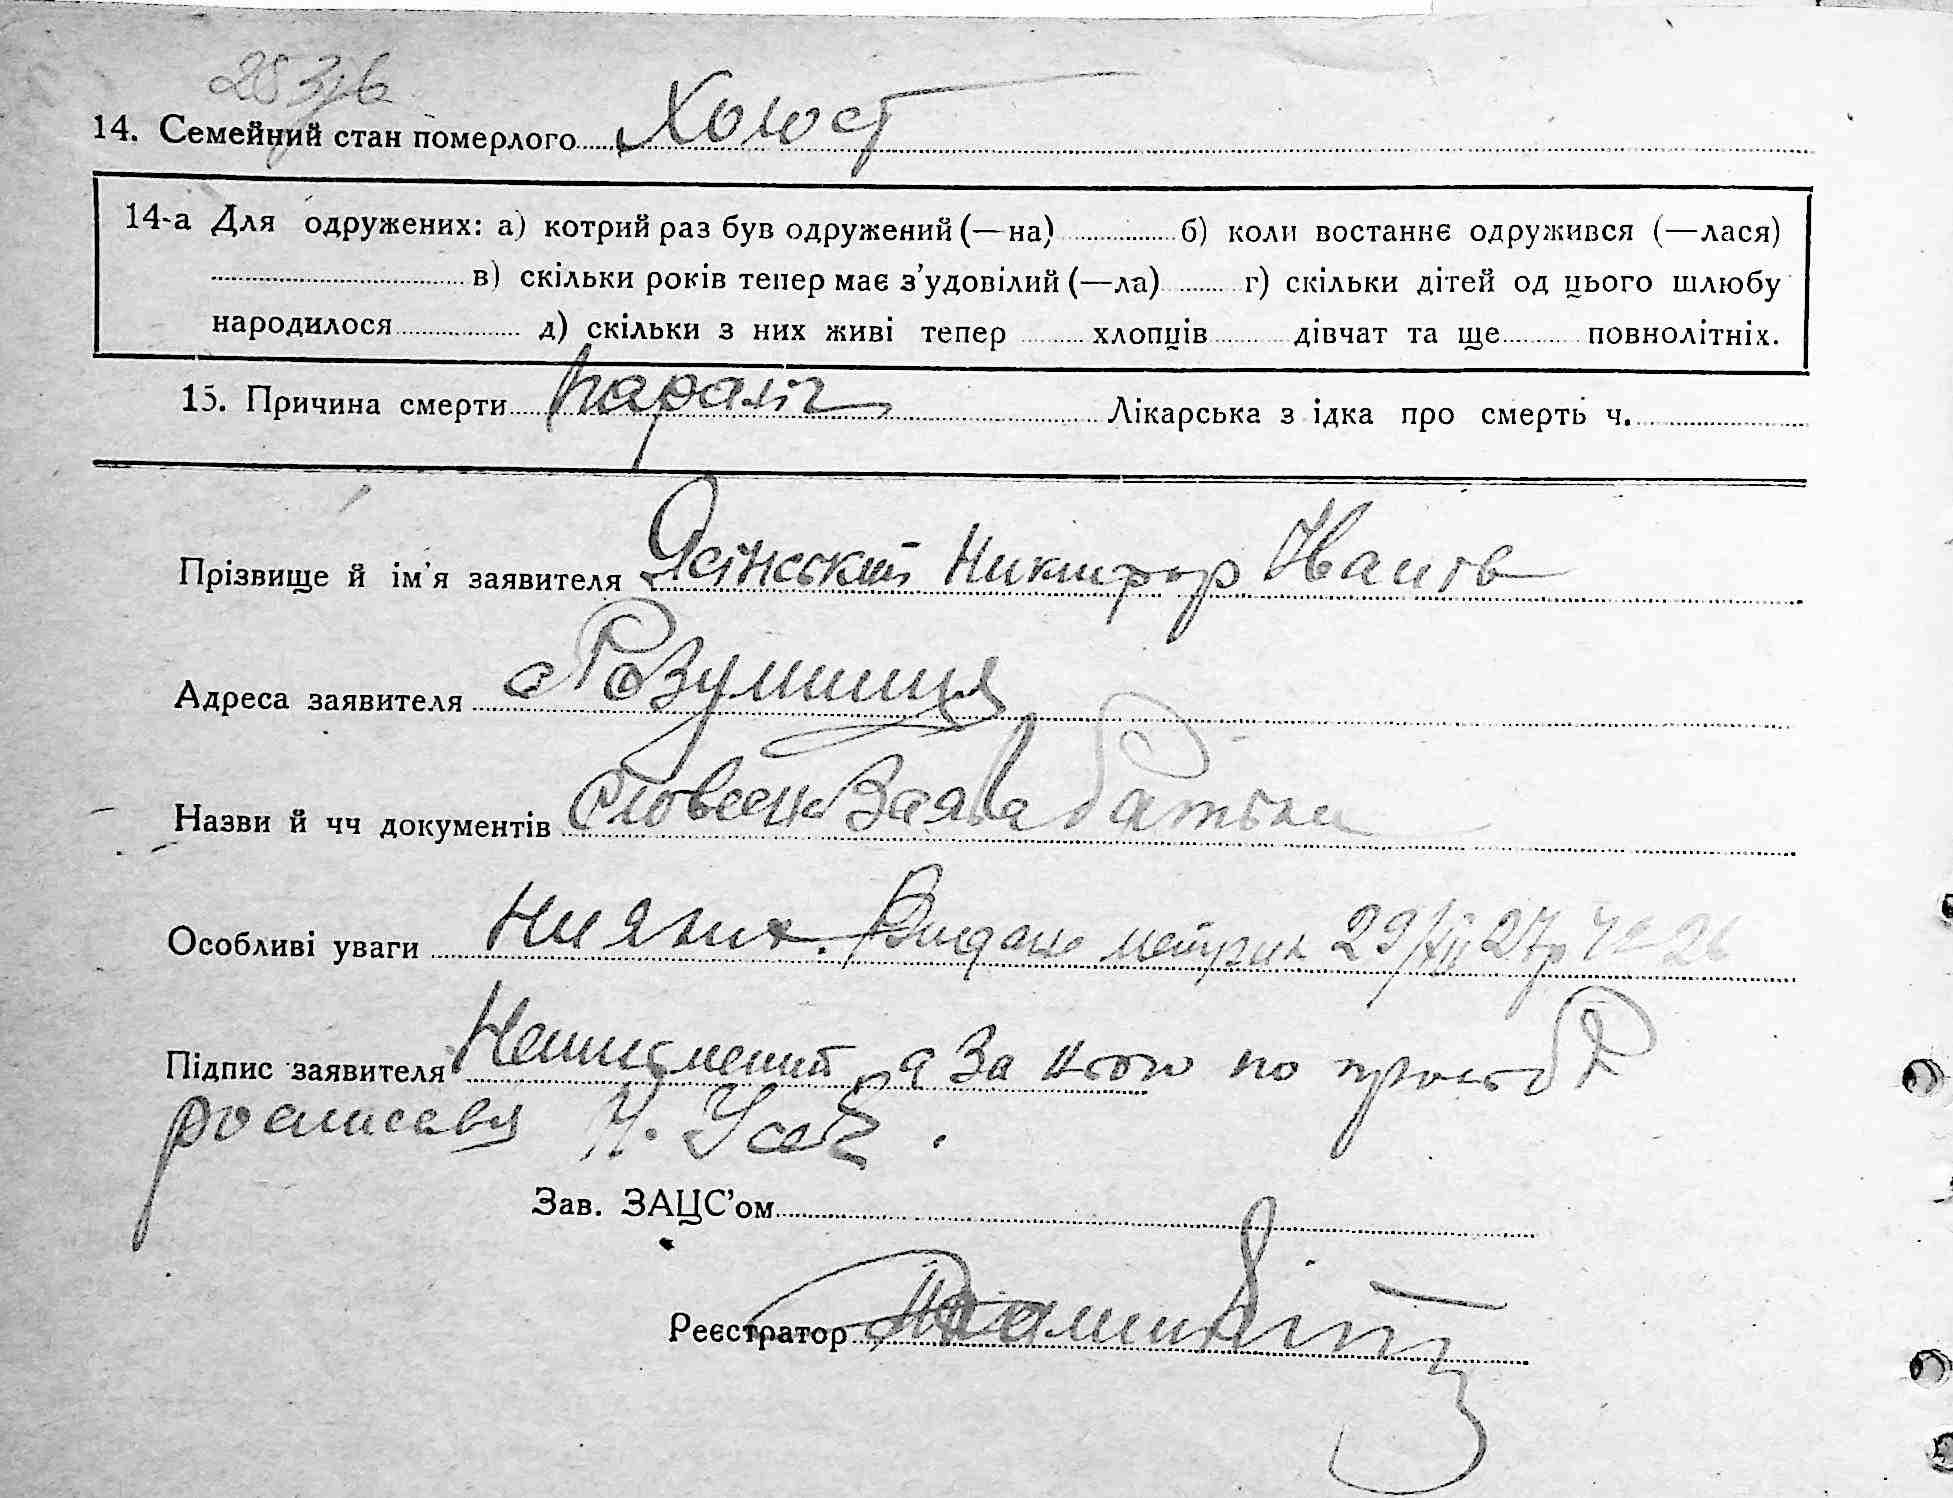 14. Семейний стан померлого Холост
14-а Для одружених: а) котрий раз був одружений (—на) б) коли востаннє одружився (—лася)
в) скільки років тепер має з'удовілий (—ла) г) скільки дітей од цього шлюбу
народилося д) скільки з них живі тепер хлопців дівчат та ще повнолітніх.
15. Причина смерти параліч Лікарська з ідка про смерть ч.
Прізвище й ім'я заявителя Ясінський Никифор Іванів
Адреса заявителя с Розумниця
Назви й чч документів Словесн Заява батька
Особливі уваги Нияких. Видане метрик 29/XII 27р
Підпис заявителя Неписменит а За його по просьбі
росписався У. Усач.
Зав. ЗАЦС'ом
Реєстратор